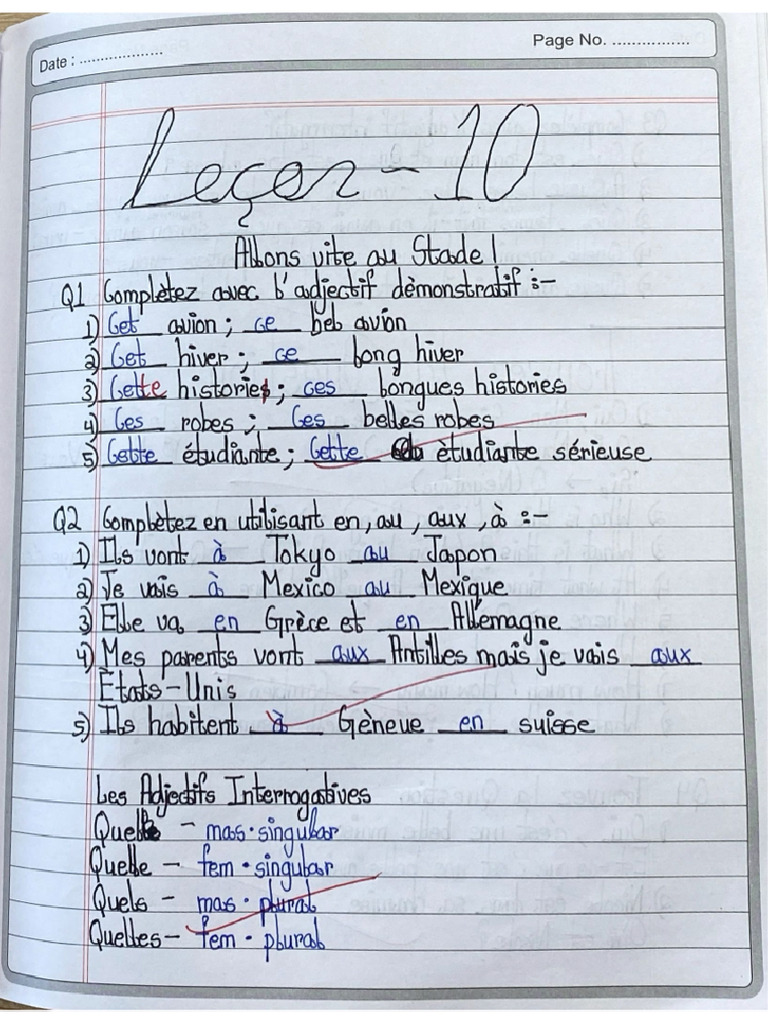 Date : ..................
Page No. ................
Leçon - 10
Allons vite au Stade!
Q1 Complètez avec l'adjectif dèmonstratif :-
1) Cet avion ; ce bel avion
2) Cet hiver ; ce long hiver
3) Cette histories ; ces longues histories
4) Ces robes ; Ces belles robes
5) Cette étudiante ; Cette ètudiante sérieuse
Q2 Complètez en utilisant en, au, aux, à :-
1) Ils vont à Tokyo au Japon
2) Je vais à Mexico au Mexique
3) Elle va en Grèce et en Allemagne
4) Mes parents vont aux Antilles mais je vais aux
États-Unis
5) Ils habitent à Gèneve en suisse
Les Adjectifs Interrogatives
Quel - mas. singular
Quelle - fem. singular
Quels - mas. plural
Quelles - fem. plural